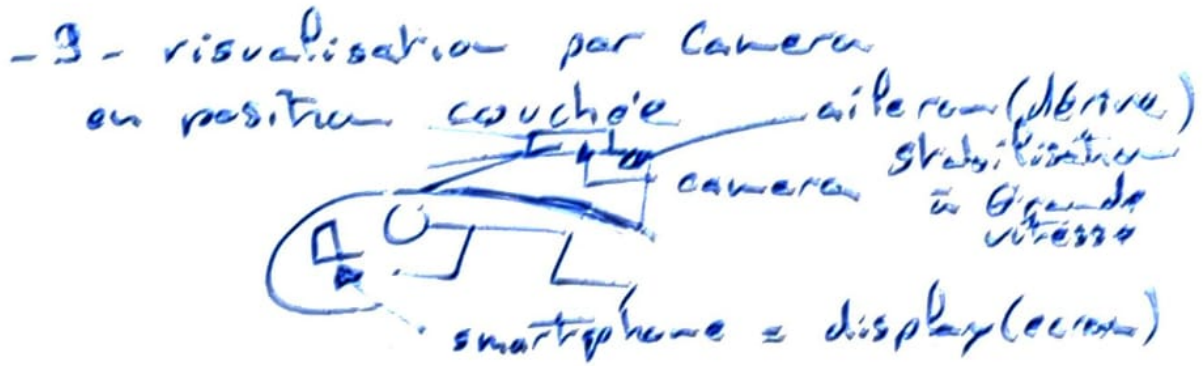 -3- visualisation par Camera
en position couchée
aileron (dérive)
stabilisation
à Grande
vitesse
camera
smartphone = display (ecran)